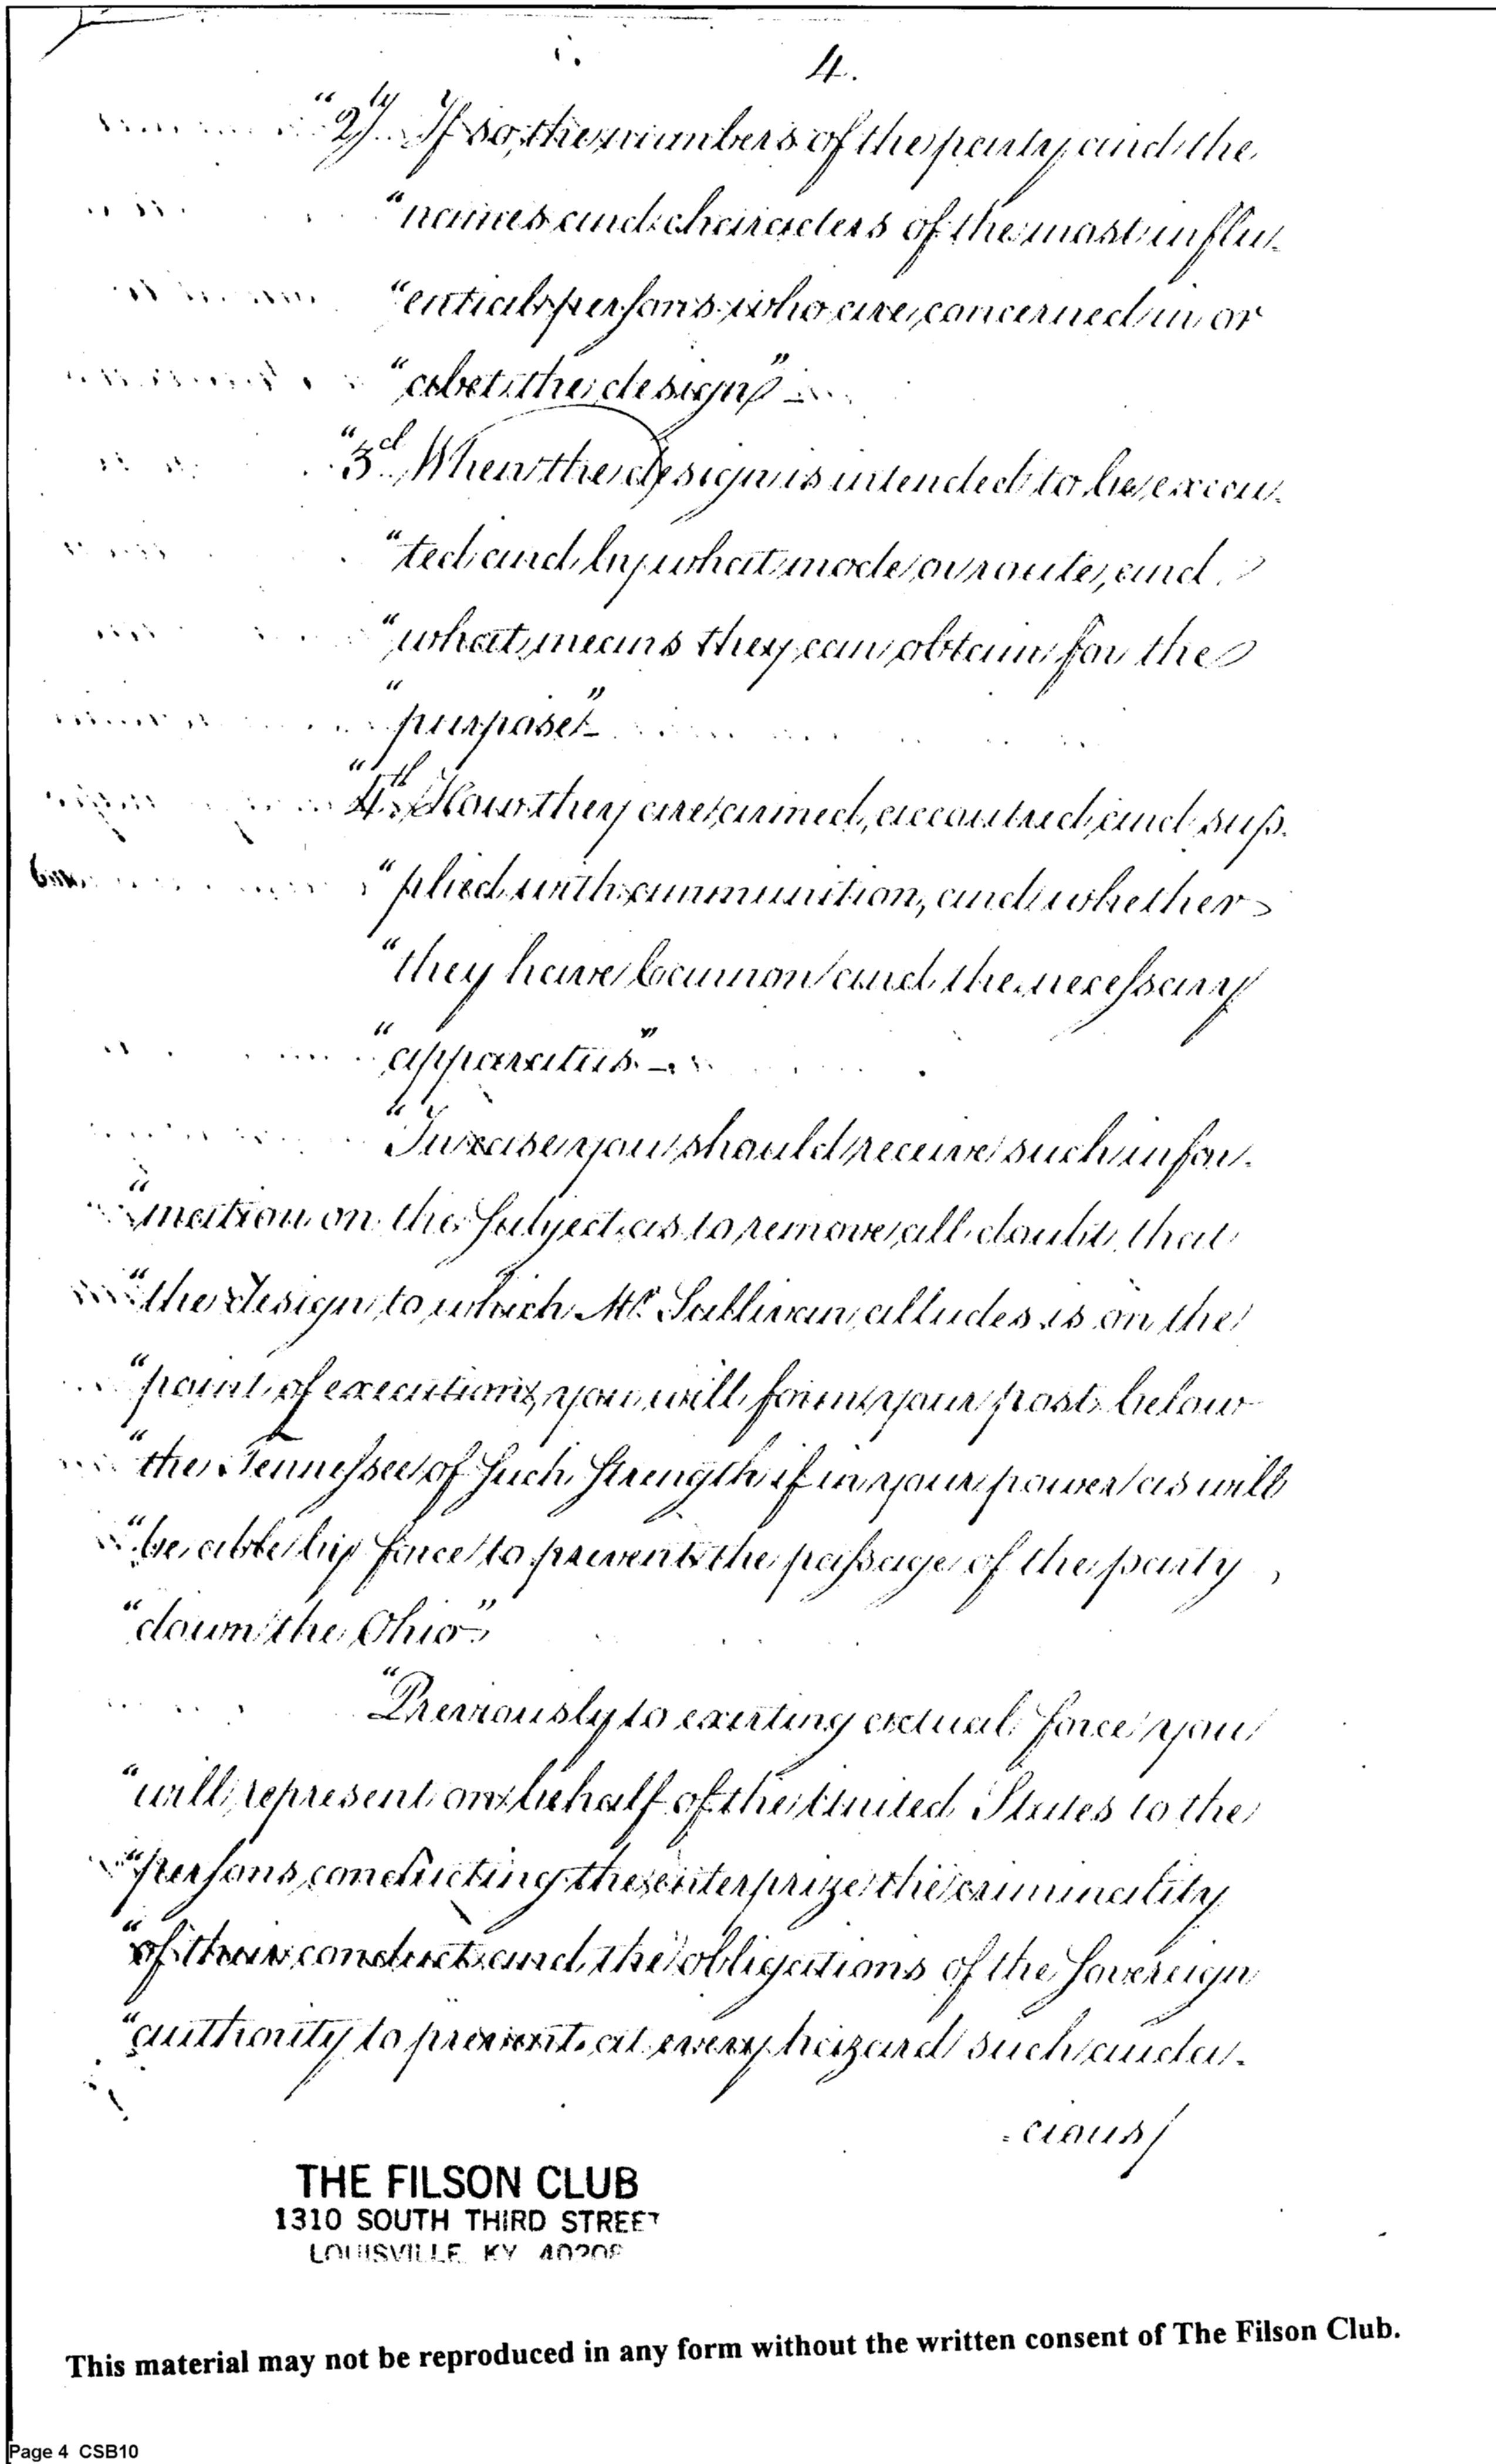 4.
"2ly If so, the numbers of the party and the
"names and characters of the most influ-
"ential persons who are concerned in or
"abet the design" –
"3d When the design is intended to be execu-
"ted and by what mode or route, and
"what means they can obtain for the
"purpose" –
"4th How they are armed, accoutred and sup-
"plied with ammunition, and whether
"they have Cannon and the necessary
"apparatus." –
"In case you should receive such infor-
"mation on the Subject as to remove all doubt, that
"the design to which Mr. Sullivan alludes is on the
"point of execution, you will form your post below
"the Tennessee of Such Strength if in your power as will
"be able by force to prevent the passage of the party
"down the Ohio"
"Previously to exerting actual force you
"will represent on behalf of the United States to the
"persons conducting the enterprize the criminality
"of their conduct and the obligations of the Sovereign
"authority to prevent at every hazard such auda-
-cious/
THE FILSON CLUB
1310 SOUTH THIRD STREET
LOUISVILLE KY 40208
This material may not be reproduced in any form without the written consent of The Filson Club.
Page 4 CSB10